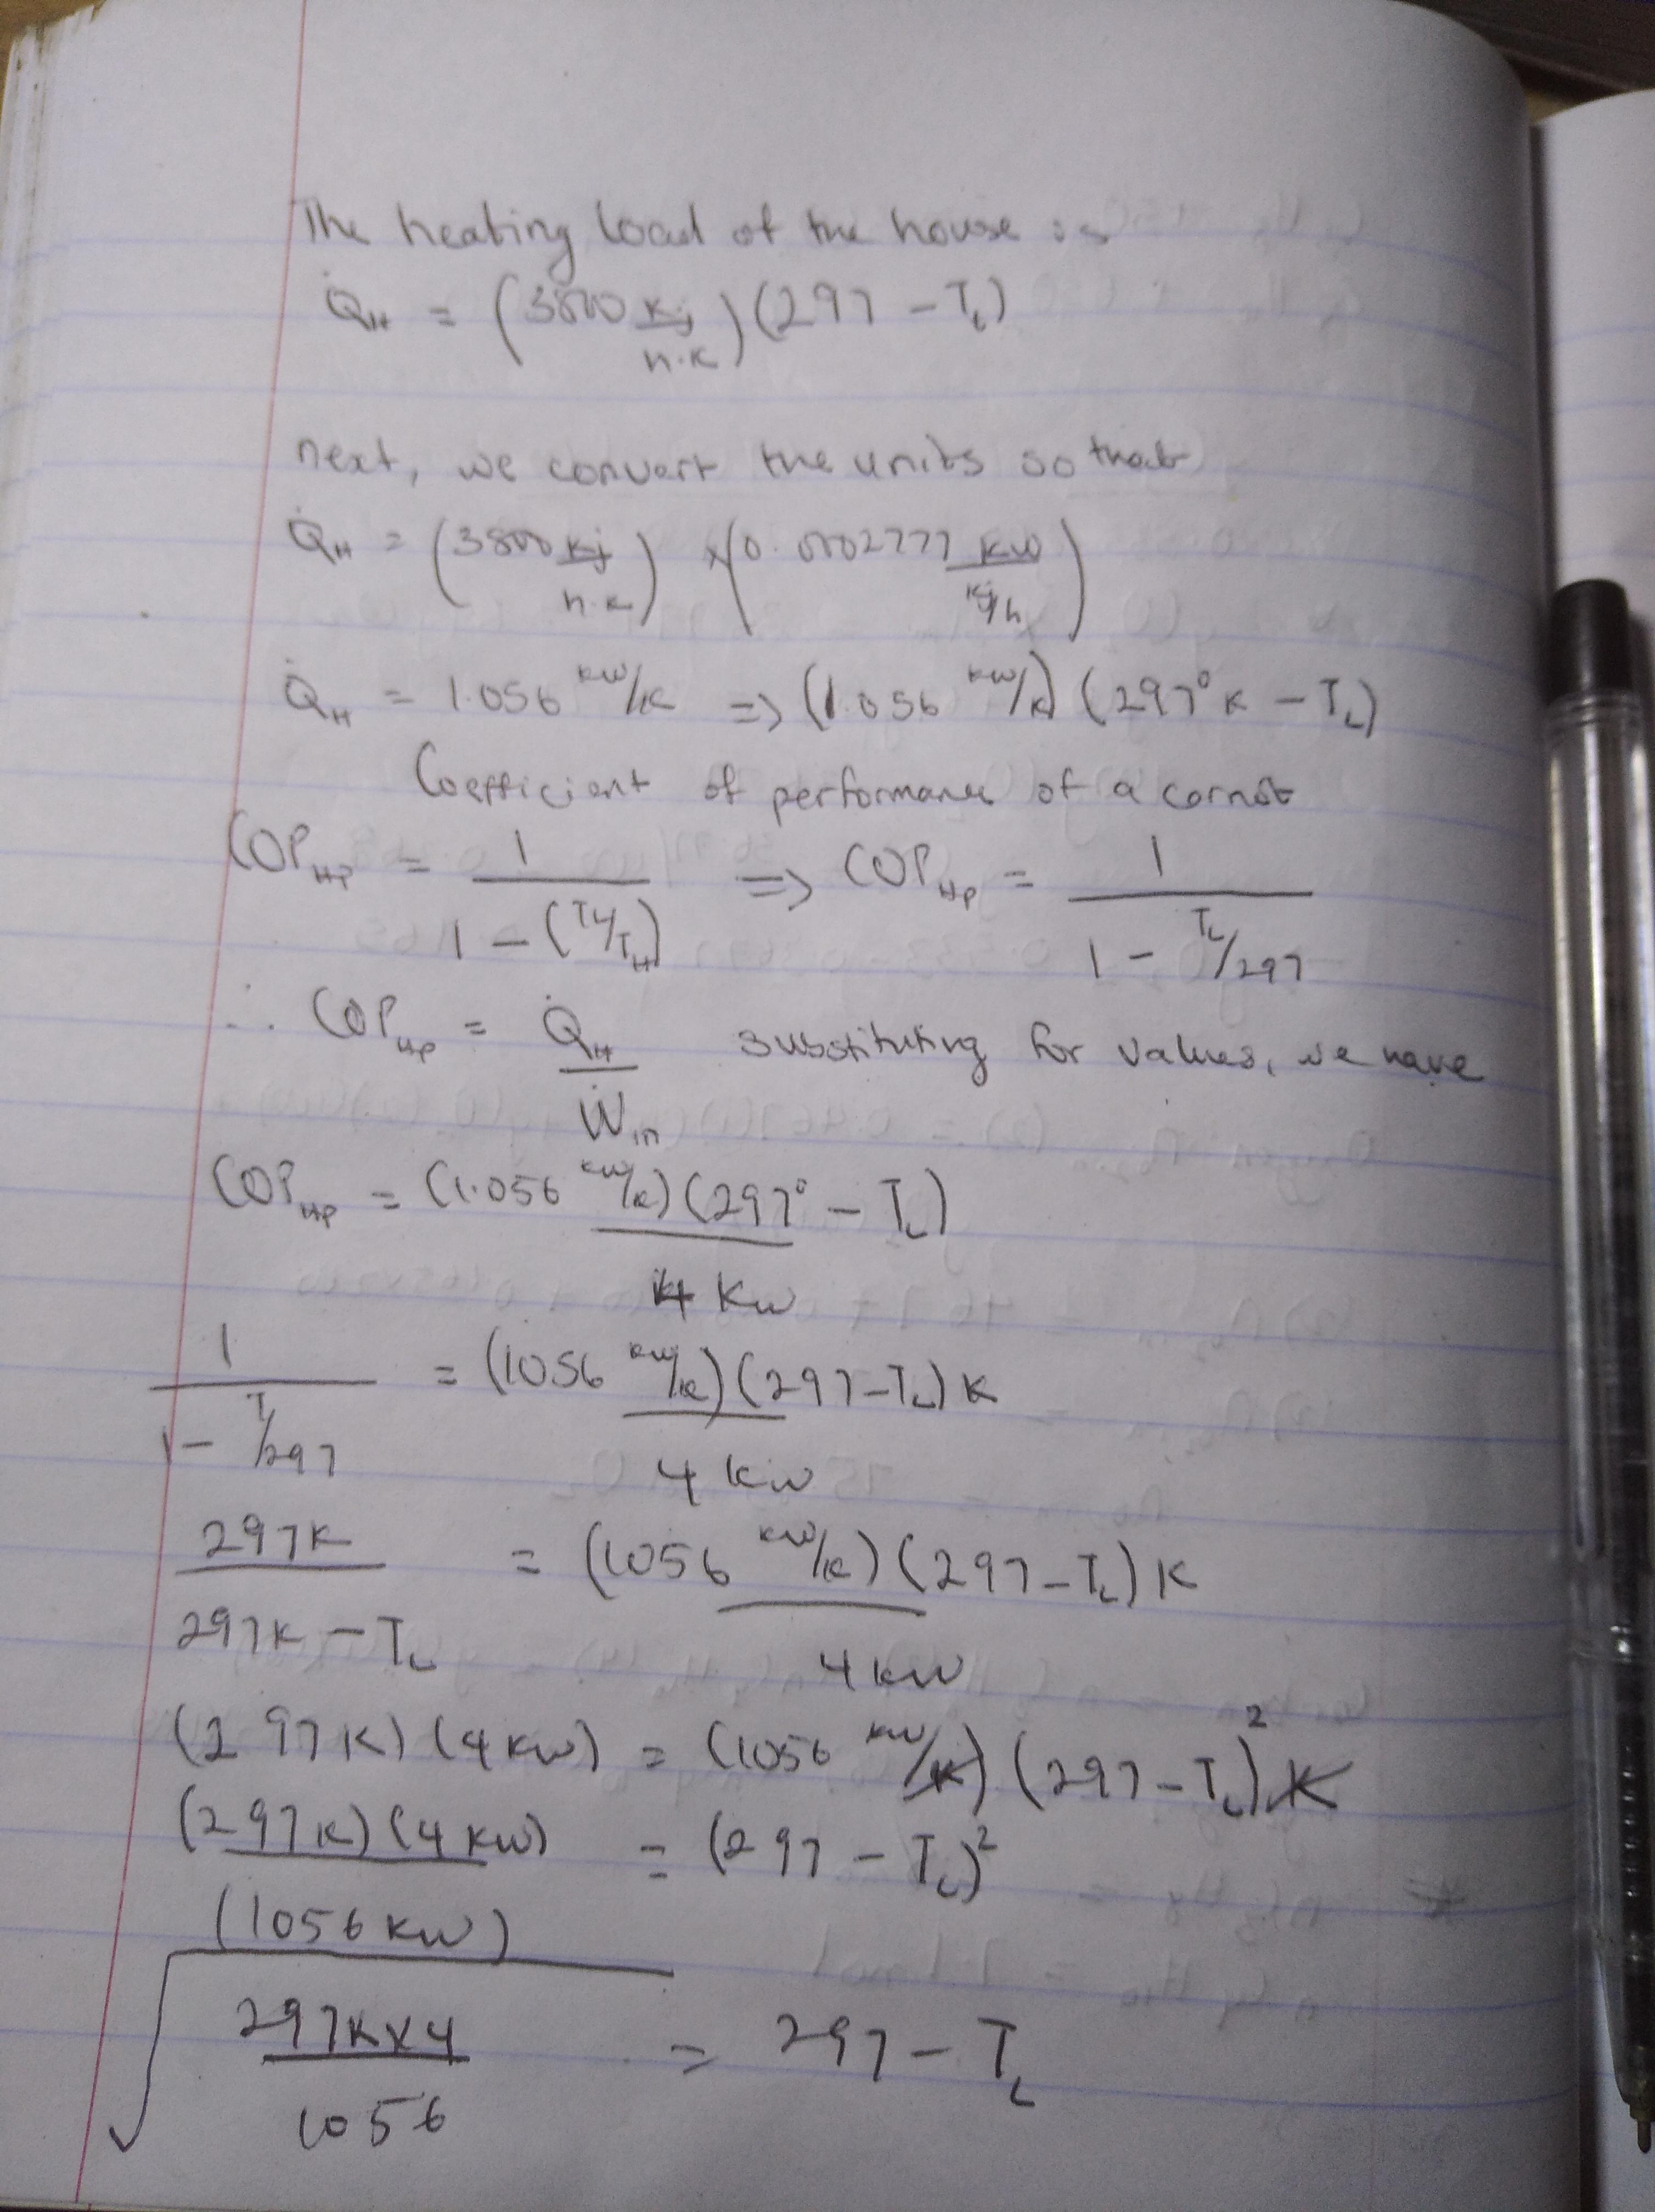 The heating load of the house is
Q̇H = (3800 Kj/h.K) (297 - TL)
next, we convert the units so that
Q̇H = (3800 Kj/h.K) x (0.0002777 KW/Kj/h)
Q̇H = 1.056 KW/K => (1.056 KW/K) (297°K - TL)
Coefficient of performance of a carnot
COPHP = 1/1 - (TL/TH) => COPHP = 1/1 - TL/297
∴ COPHP = Q̇H/Ẇin substituting for values, we have
COPHP = (1.056 KW/K) (297° - TL)/4 KW
1/1 - T/297 = (1056 KW/K) (297 - TL) K/4 KW
297K/297K - TL = (1056 KW/K) (297 - TL) K/4 KW
(297K) (4KW) = (1056 KW/K) (297 - TL)² K
(297K) (4KW)/(1056 KW) = (297 - TL)²
√297K x 4/1056 = 297 - TL